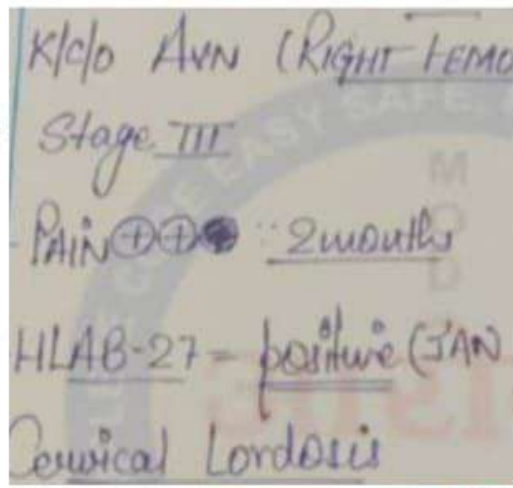 K/c/o AVN (RIGHT FEMO
Stage III
- PAIN ⊕⊕ : 2 months
HLAB-27 - positive (JAN
Cervical Lordosis